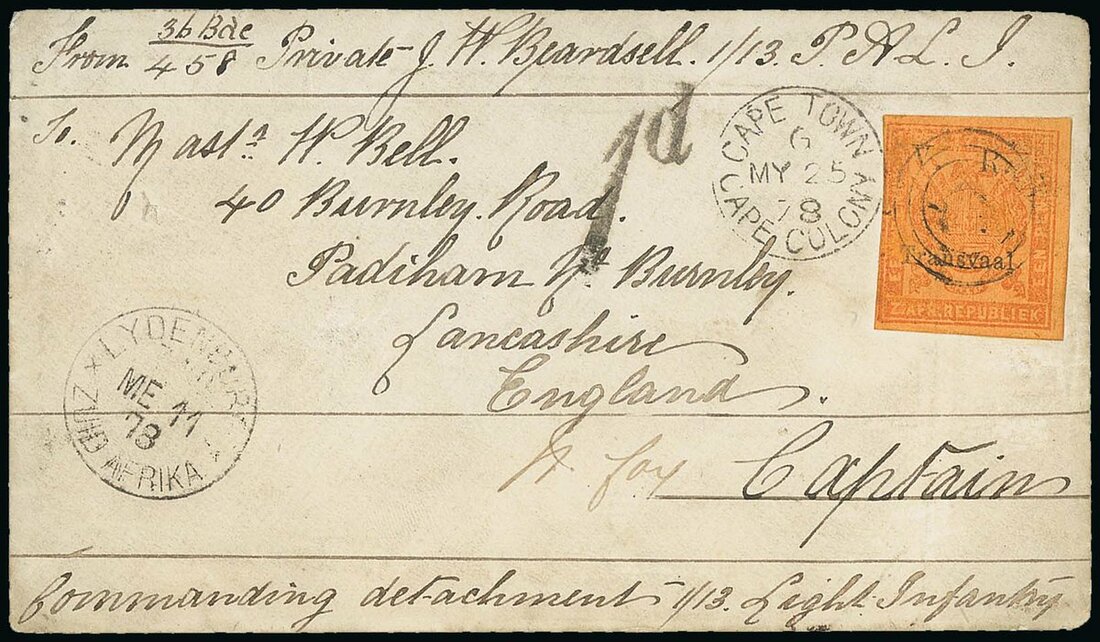 From 36 Bde / 458 Private J. W. Beardsell. 1/13. P. A L. I.
To. Mastr. W. Bell.
40 Burnley. Road.
Padiham Nr. Burnley.
Lancashire
England.
Captain
Commanding detachment 1/13. Light Infantry
1d
CAPE TOWN
G
MY 25
78
CAPE COLONY
Transvaal
AFR. REPUBLIEK
LYDENBURG
ME 11
78
ZUID AFRIKA